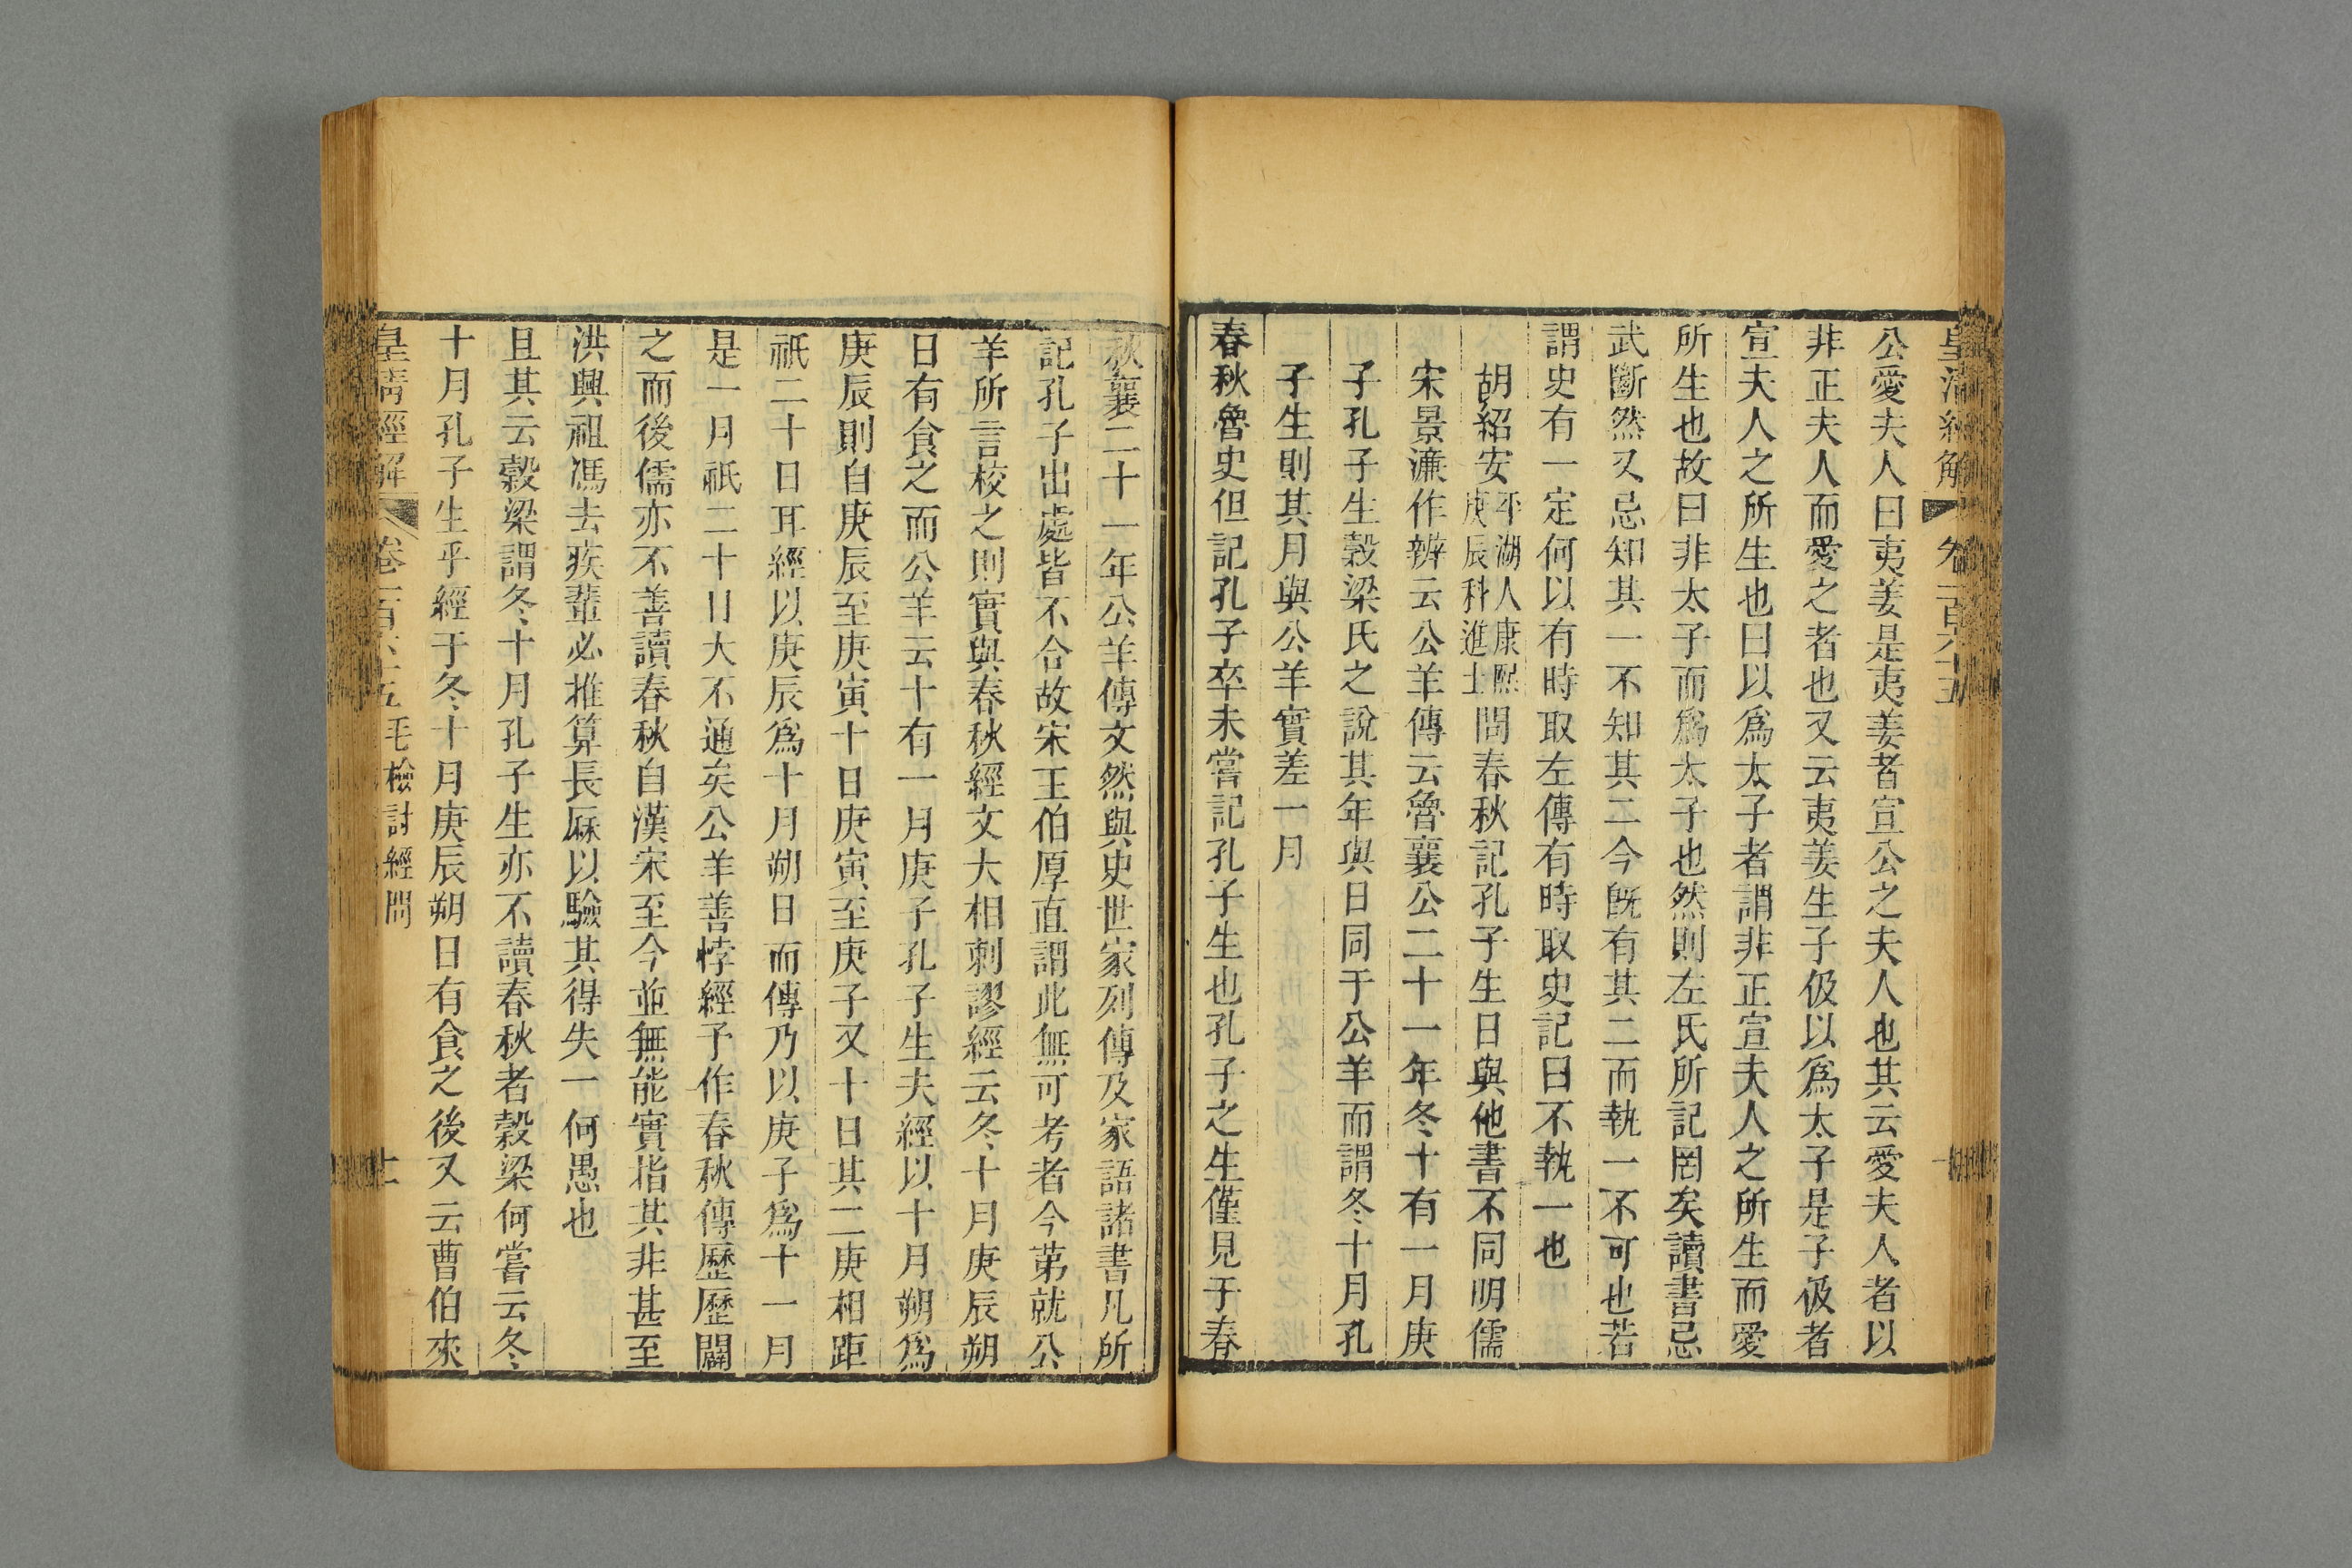 公愛夫人曰夷姜是夷姜者宣公之夫人也其云愛夫人者以
非正夫人而愛之者也又云夷姜生子伋以爲太子是子伋者
宣夫人之所生也曰以爲太子者謂非正宣夫人之所生而愛
所生也故曰非太子而爲太子也然則左氏所記罔矣讀書忌
武斷然又忌知其一不知其二今旣有其二而執一不可也若
謂史有一定何以有時取左傳有時取史記曰不執一也
胡紹安平湖人康熙庚辰科進士問春秋記孔子生日與他書不同明儒
宋景濂作辨云公羊傳云魯襄公二十一年冬十有一月庚
子孔子生穀梁氏之說其年與日同于公羊而謂冬十月孔
子生則其月與公羊實差一月
春秋魯史但記孔子卒未嘗記孔子生也孔子之生僅見于春
秋襄二十一年公羊傳文然與史世家列傳及家語諸書凡所
記孔子出處皆不合故宋王伯厚直謂此無可考者今苐就公
羊所言校之則實與春秋經文大相刺謬經云冬十月庚辰朔
日有食之而公羊云十有一月庚子孔子生夫經以十月朔爲
庚辰則自庚辰至庚寅十日庚寅至庚子又十日其二庚相距
祇二十日耳經以庚辰爲十月朔日而傳乃以庚子爲十一月
是一月祇二十日大不通矣公羊善悖經予作春秋傳歷歷闢
之而後儒亦不善讀春秋自漢宋至今並無能實指其非甚至
洪興祖馮去疾輩必推算長厤以驗其得失一何愚也
且其云穀梁謂冬十月孔子生亦不讀春秋者穀梁何嘗云冬
十月孔子生乎經于冬十月庚辰朔日有食之後又云曹伯來
皇清經解 卷一百六十五 毛檢討經問